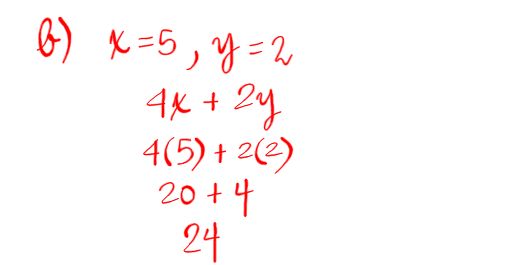 b) x=5, y=2
4x + 2y
4(5) + 2(2)
20 + 4
24